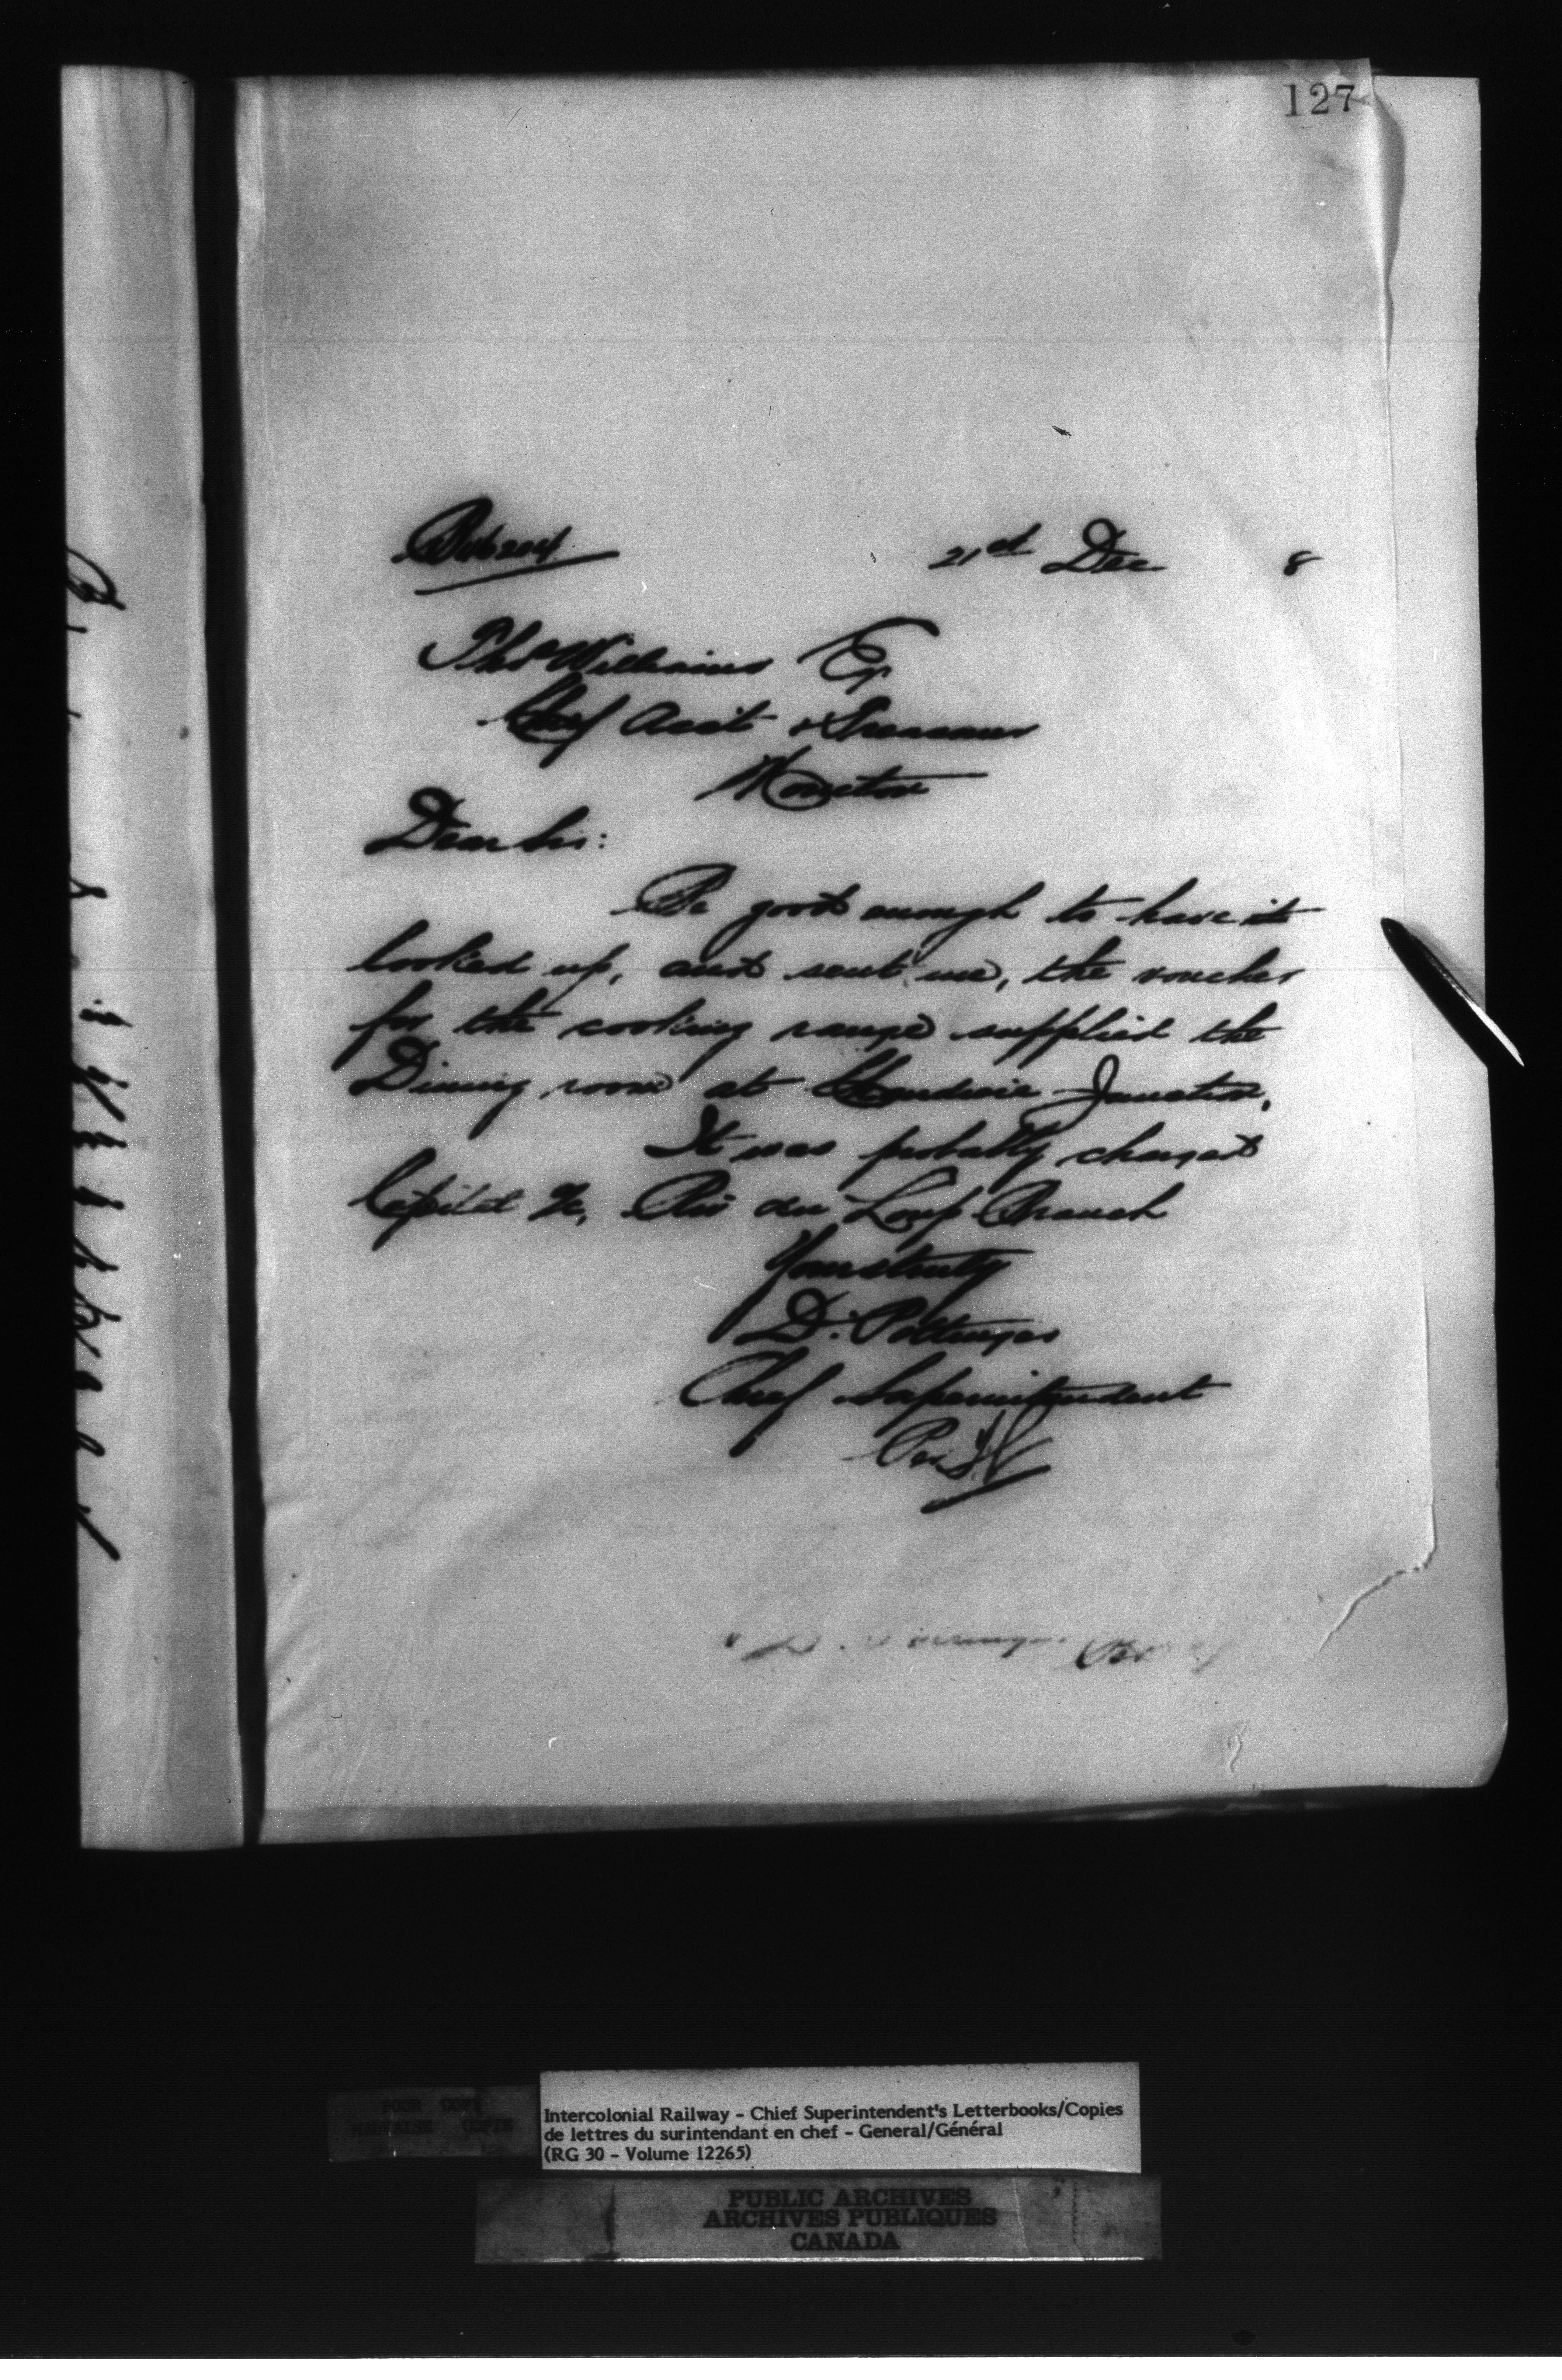 127
21st Dec 8
Thos Williams Esq
Chief Acct & Treasurer
Moncton
Dear Sir:
Be good enough to have it
looked up, and sent me, the voucher
for the cooking range supplied the
Dining room at Chaudiere Junction.
It was probably charged
Capital a/c, Riv du Loup Branch
Yours truly
D. Pottinger
Chief Superintendent
Per
POOR COPY
MAUVAISE COPIE
Intercolonial Railway - Chief Superintendent's Letterbooks/Copies
de lettres du surintendant en chef - General/Général
(RG 30 - Volume 12265)
PUBLIC ARCHIVES
ARCHIVES PUBLIQUES
CANADA